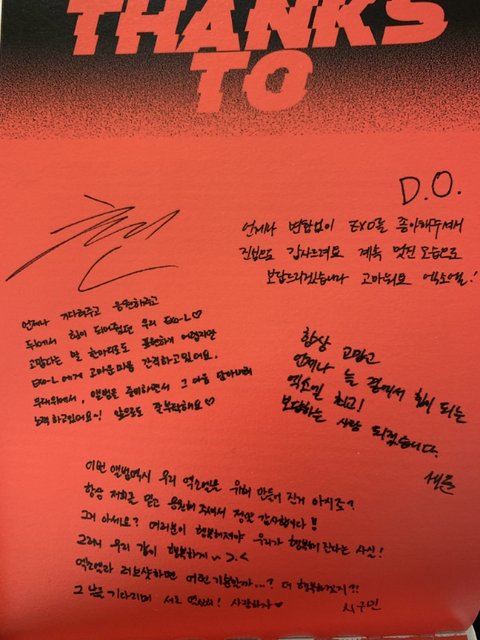 THANKS
TO
D.O.
언제나 변함없이 EXO를 좋아해주셔서
진심으로 감사드려요 계속 멋진 모습으로
보답드리겠습니다 고마워요 엑소엘!
언제나 기다려주고 응원해주고
뒤에서 힘이 되어줬던 우리 EXO-L ♡
고맙다는 말 한마디로도 표현하기 어렵지만
EXO-L 에게 고마운 마음 간직하고있어요.
무대위에서, 앨범을 준비하면서 그 마음 담아내려
노력하고있어요~! 앞으로도 잘부탁해요 ♡
항상 고맙고
언제나 늘 곁에서 힘이 되는
엑소엘 최고!
보답하는 사람 되겠습니다.
세훈
이번 앨범역시 우리 엑소엘을 위해 만들어 진거 아시죠?
항상 저희를 믿고 응원해 주셔서 정말 감사합니다!!
그거 아세요? 여러분이 행복해져야 우리가 행복해 진다는 사실!
그러니 우리 같이 행복하게 ㅂ >.<
엑소엘과 러브샷하면 어떤 기분일까...? 더 행복하겠지?!
그 날을 기다리며 서로 엑쏘씨! 사랑하자 ♡
시우민